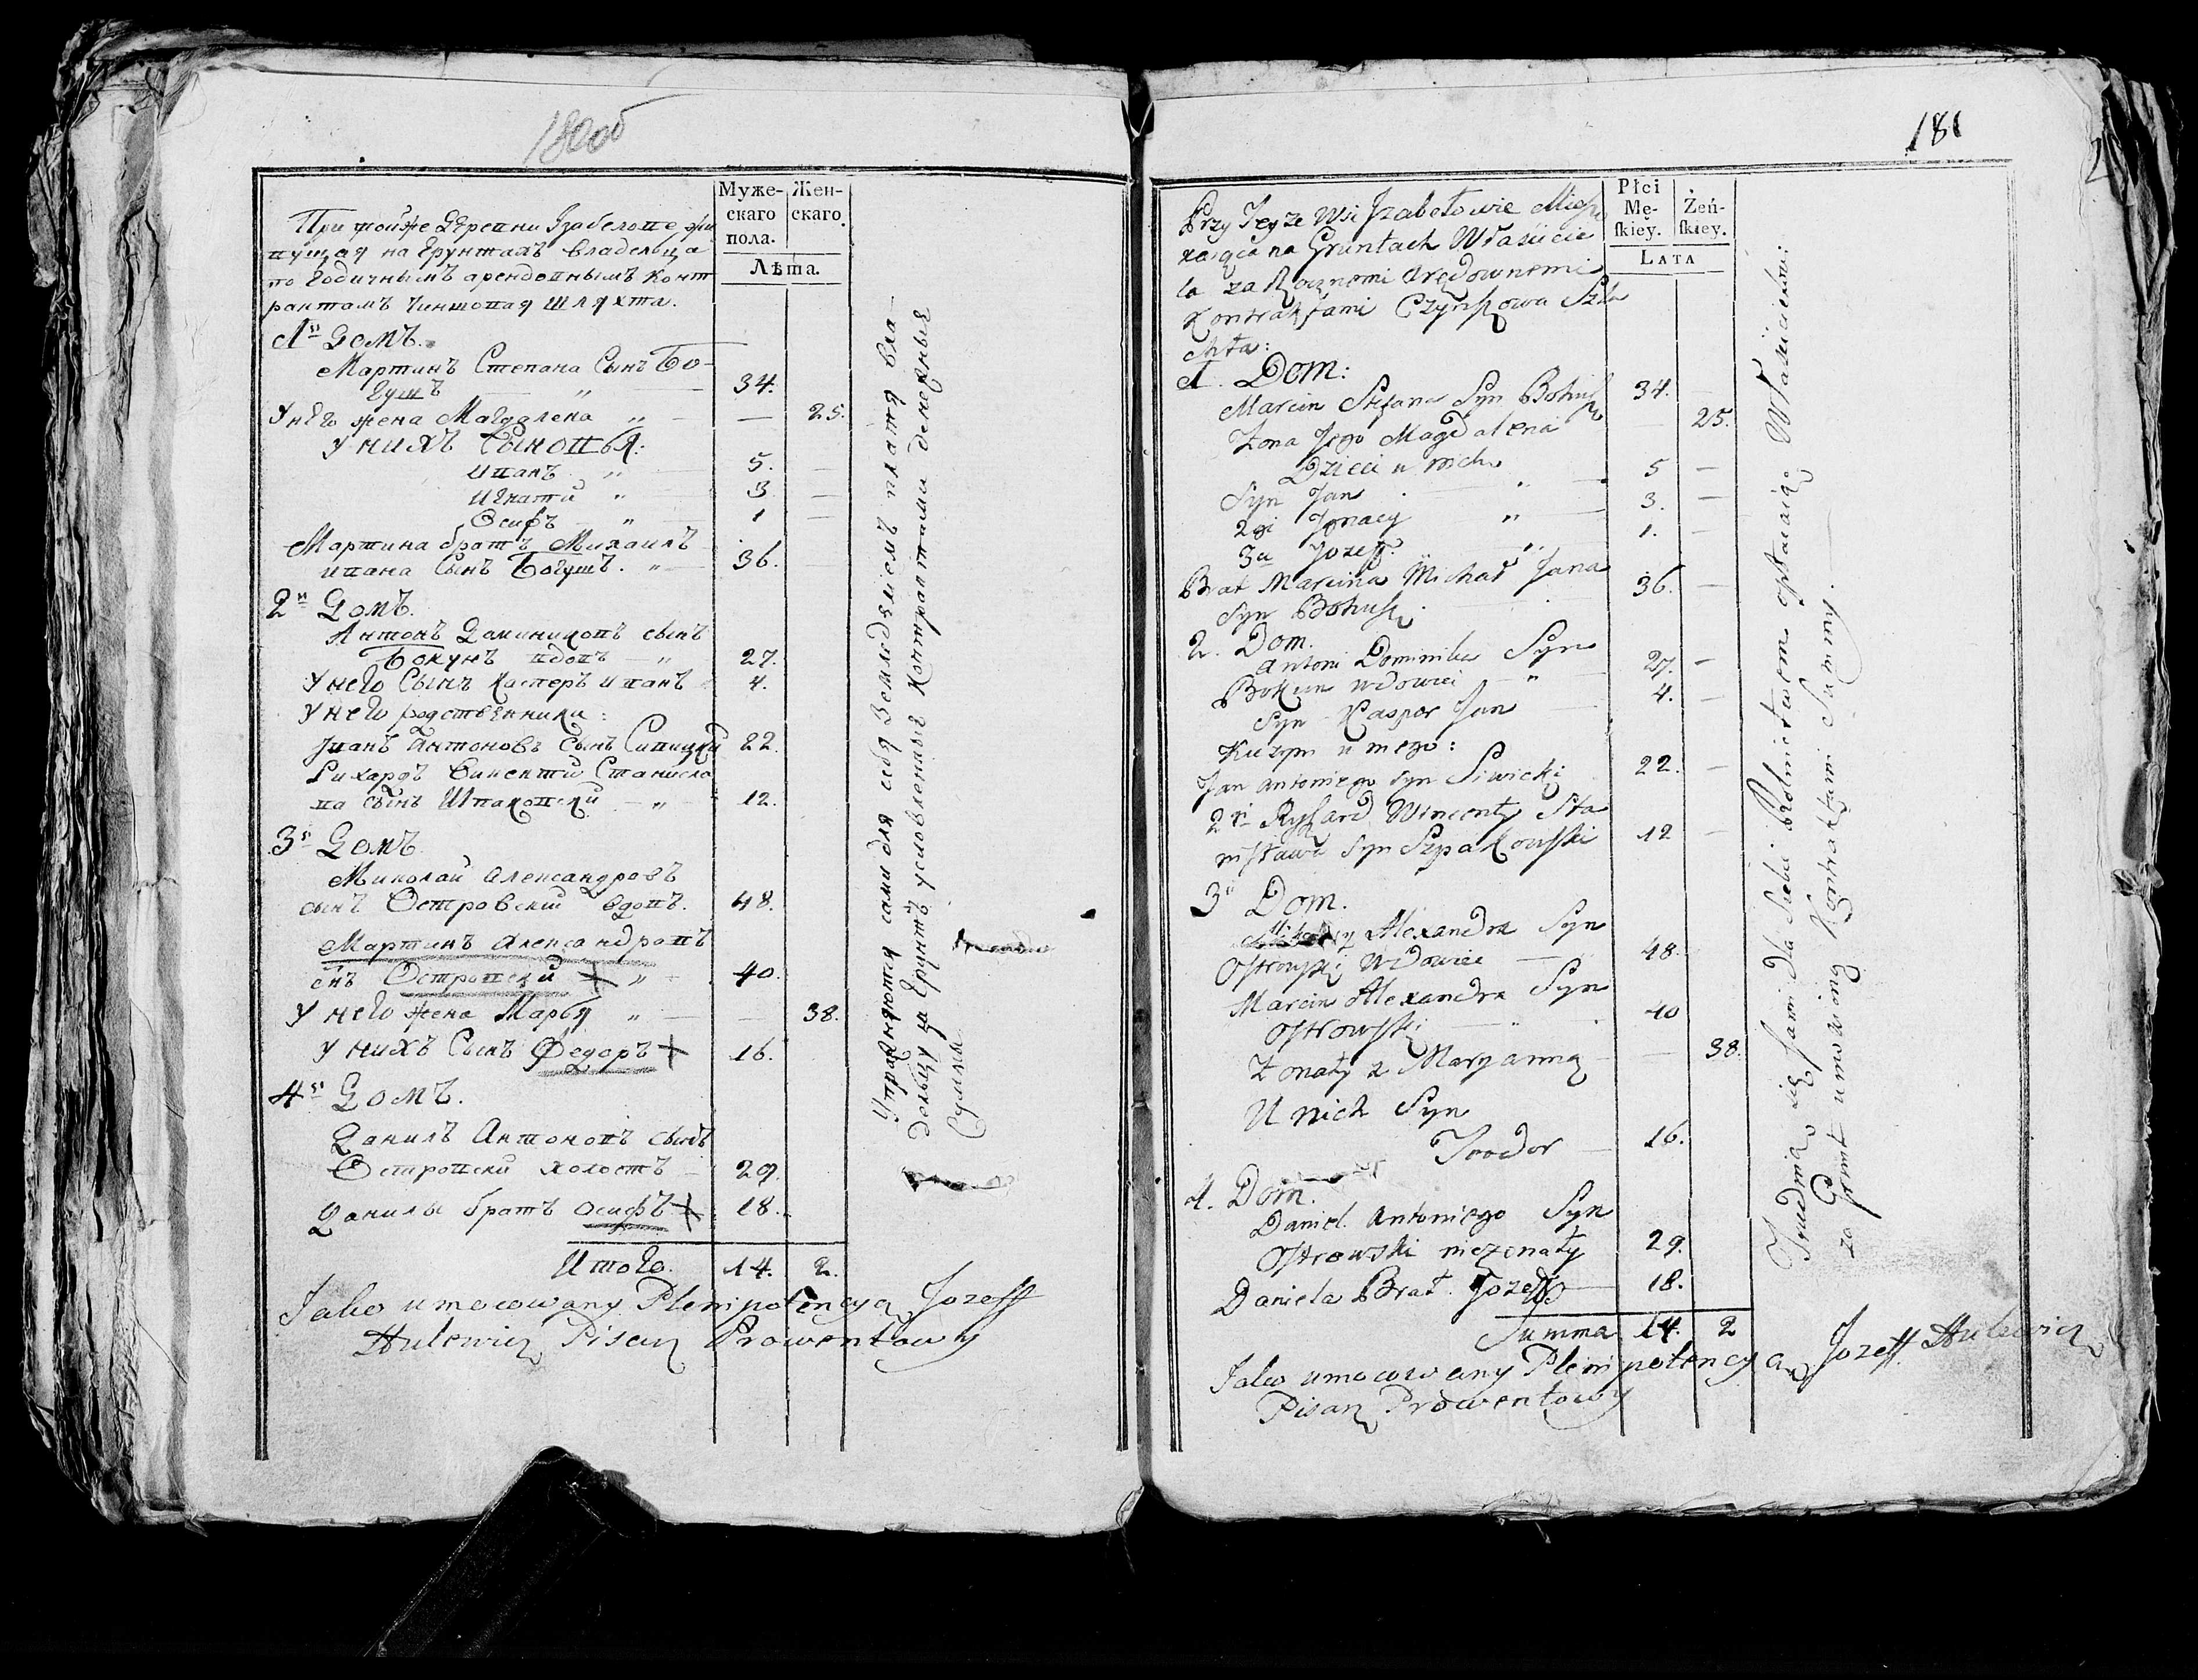 180об
Муже-
скаго
пола.
Жен-
скаго.
Лѣта.
При тойже Деревни Изабелове жи
вущая на Грунтахъ Владельца
по Годичнымъ арендовнымъ конт
рактамъ Чиншовая шляхта.
1й Домъ.
Мартинъ Степана Сынъ Бо-
гушъ 34.
У него жена Магдалена 25.
У нихъ Сыновья:
Иванъ 5.
Игнатий 3
Осифъ 1
Мартина братъ Михаилъ
Ивана Сынъ Богушъ. 36.
2й Домъ.
Антонъ Доминиковъ сынъ
Бокунъ вдовъ 27.
У него Сынъ Касперъ Иванъ 4.
У него родственники:
Иванъ Антоновъ Сынъ Сивицкий 22.
Рихардъ Викентий Станисла
ва сынъ Шпаковски 12.
3й Домъ
Миколай Александровъ
сынъ Островский вдовъ. 48.
Мартинъ Александровъ
снъ Островский 40.
У него жена Марья 38.
У нихъ Сынъ Федоръ 16.
4й Домъ.
Данилъ Антоновъ сынъ
Островски холостъ 29.
Данилы братъ Осифъ 18.
Итого. 14. 2.
Jako umocowany Plenipotencyą Jozeff
Hulewicz Pisarz Prowentowy
Упражняются сами для себя Земледѣлиемъ платя вла-
дельцу за Грунтъ условленные Контрактами денежные
Суммы
181
Płci
Mę-
skiey.
Żeń-
skiey.
LATA
Przy Teyże Wsi Jzabełowie Miesz
kaiąca na Gruntach Właściciela
la za Rocznemi Arędownemi
Kontraktami Czynszowa Szla
chta:
1. Dom:
Marcin Stefana Syn Bohusz 34.
Żona Jego Magdalena 25.
Dzieci u nich
Syn Jan 5
2gi Jgnacy 3.
3ci Jozeff. 1.
Brat Marcina Michał Jana
Syn Bohusz 36.
2. Dom.
Antoni Dominika Syn
Bokun wdowiec 27.
Syn Kasper Jan 4.
Kuzyn u niego:
Jan Antoniego syn Siwicki 22.
2gi Ryszard Wincenty Sta
nisława Syn Szpakowski 12
3ci Dom.
Mikołay Alexandra Syn
Ostrowski Wdowiec 48.
Marcin Alexandra Syn
Ostrowski 40
Żonaty z Maryanną 38.
U nich Syn
Teodor 16.
4. Dom.
Daniel Antoniego Syn
Ostrowski nieżonaty 29.
Daniela Brat Jozeff 18.
Summa 14. 2
Jako umocowany Plenipotencyą Jozeff Hulewicz
Pisarz Prowentowy
Trudnią się sami dla siebie Rolnictwem opłacaiąc Właścicielowi
za Grunt umowioną Kontraktami Summę.